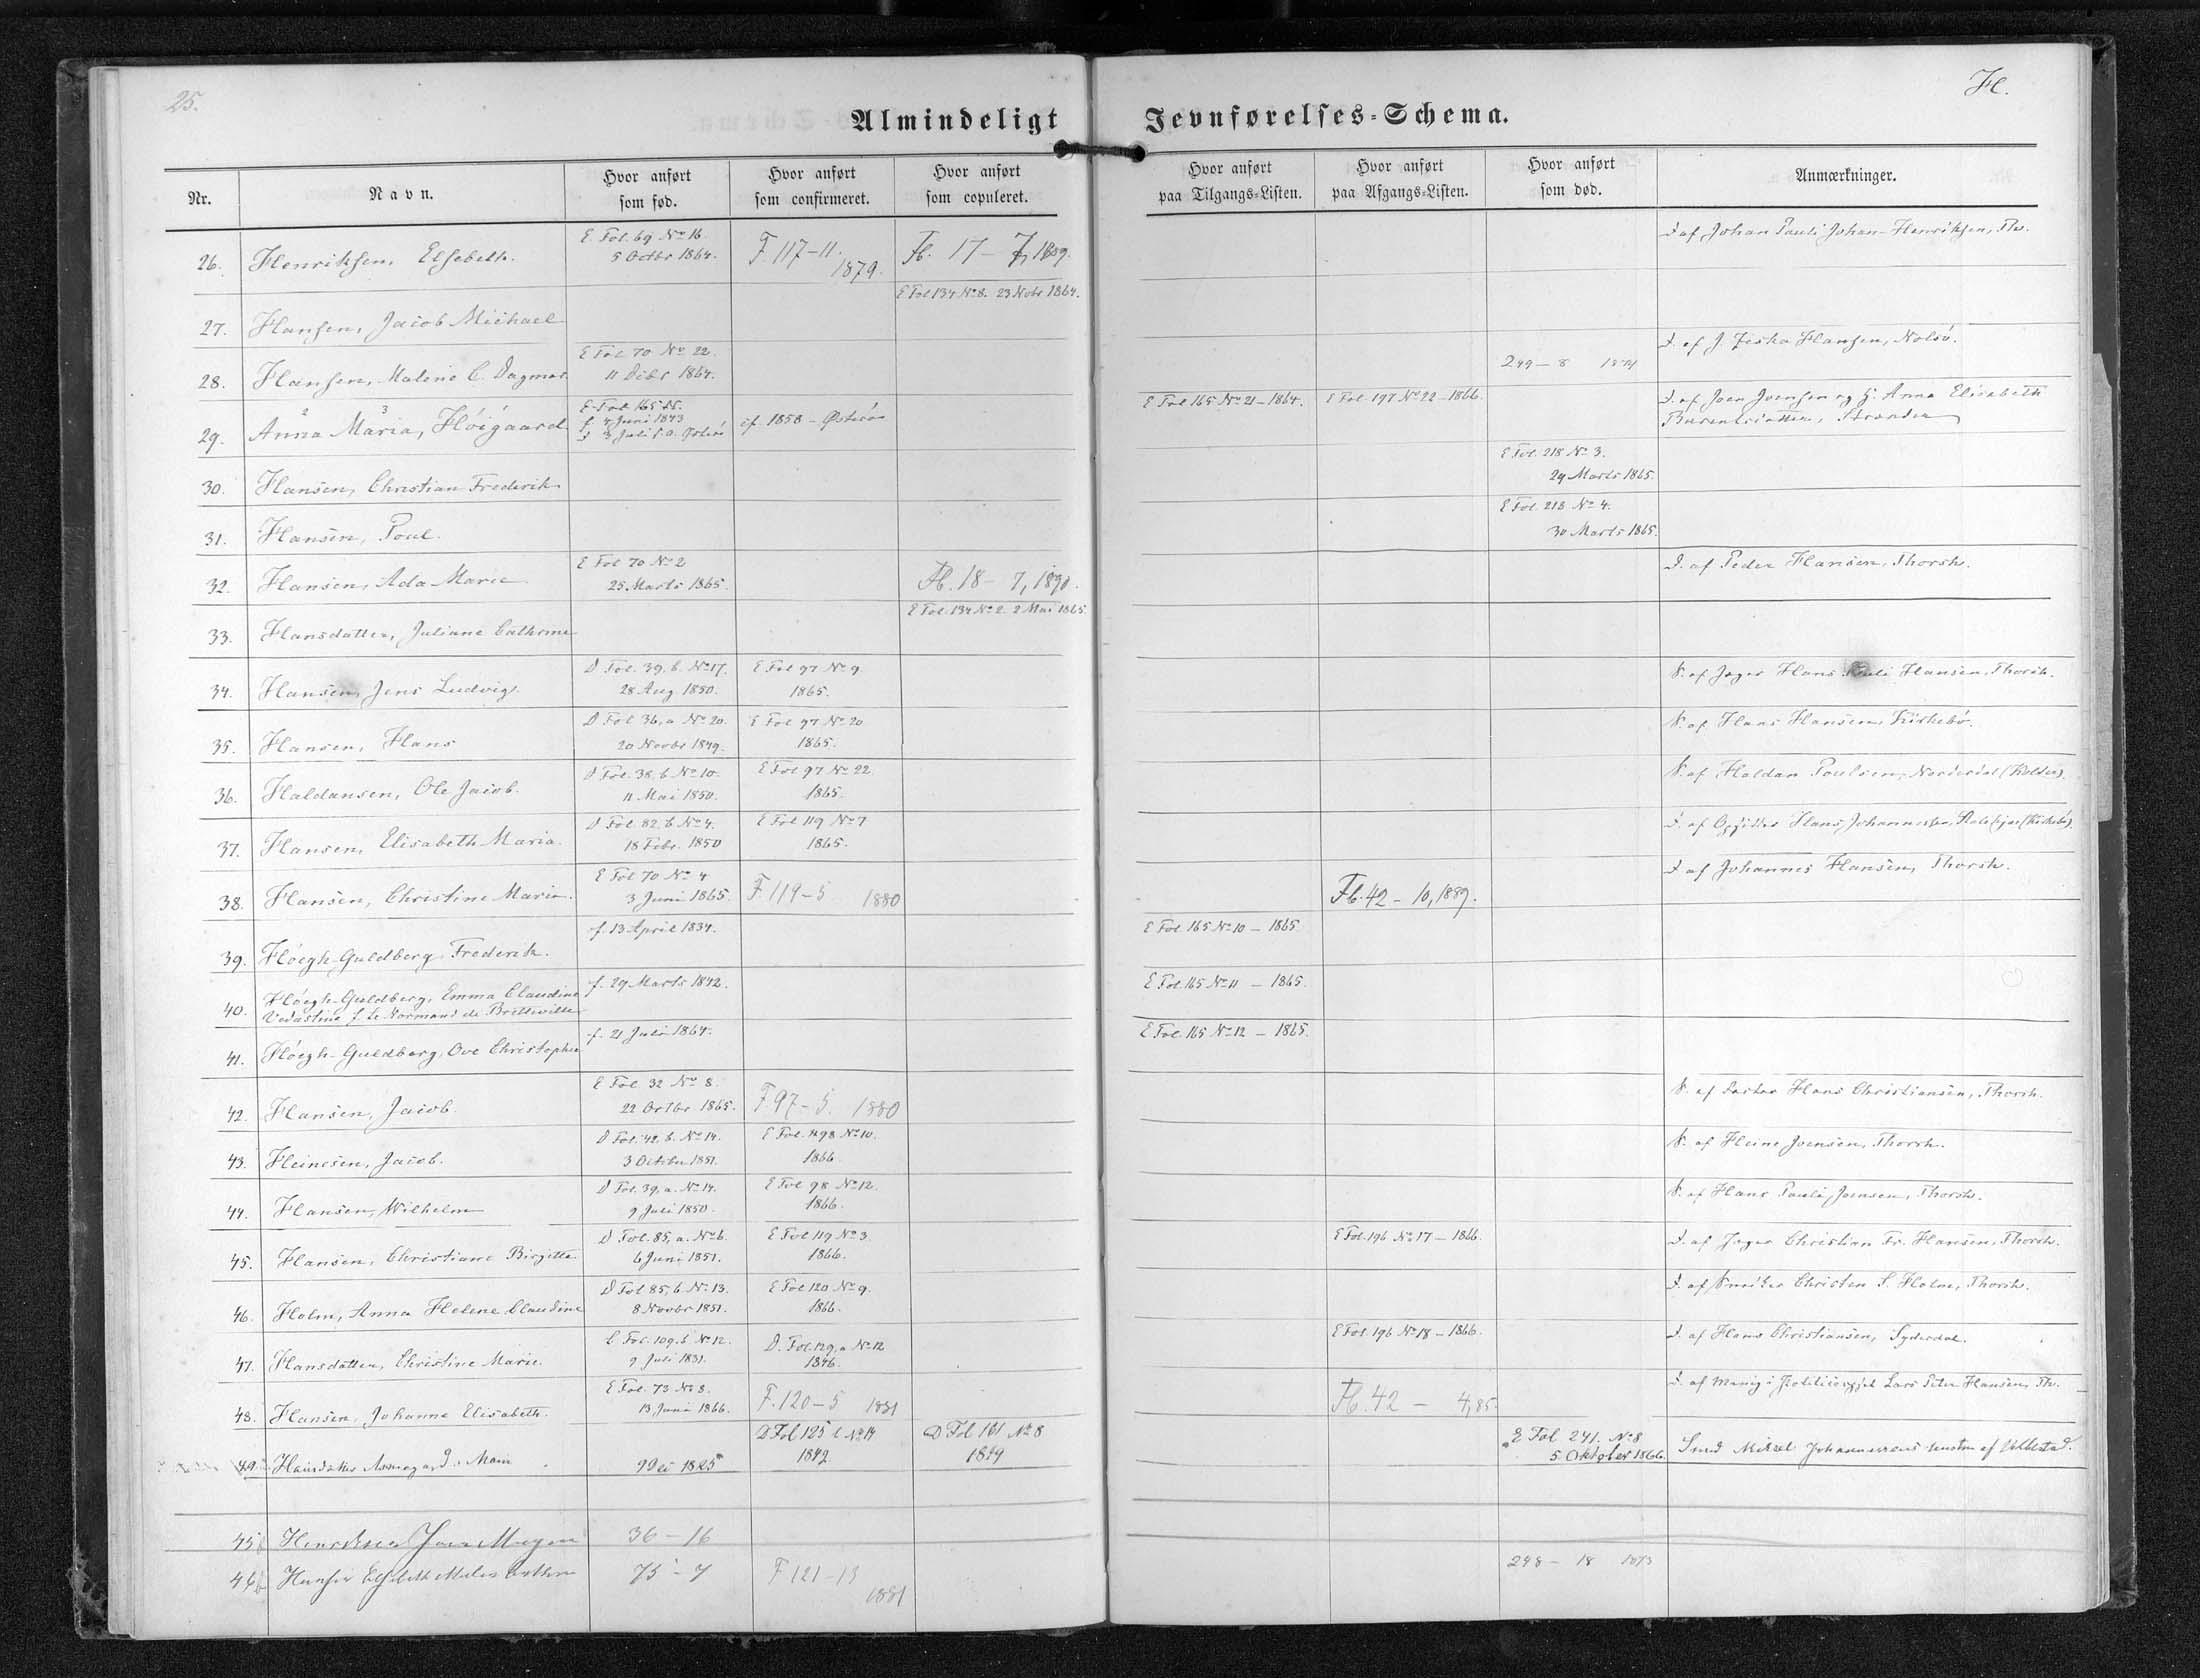 25.
H.
Almindeligt Jevnførelses-Schema.
Nr.
Navn.
Hvor anført
som fød.
Hvor anført
som confirmeret.
Hvor anført
som copuleret.
Hvor anført
paa Tilgangs-Listen.
Hvor anført
paa Afgangs-Listen.
Hvor anført
som død.
Anmærkninger.
26. Henriksen, Elsebeth.
E Fol. 69 No 16
5 Octbr 1864.
F. 117-11.
1879.
Fb. 17 - 7, 1889.
D af Johan Pauli Johan-Henriksen, Th.
27. Hansen, Jacob Michael
E Fol 134 No 8. 23 Nobr 1864.
28. Hansen, Malene C. Dagmar.
E Fol 70 No 22.
11 Decbr 1864.
249 - 8
D. af J. Zeska Hansen, Nolsö.
29. Anna Maria, Höigaard
2 3
E Fol 165
f. 4 Juni 1843
D 3 Juli s. a. Österö
cf. 1858 - Österö
E Fol 165 No 21 - 1864.
E Fol. 197 No 22 - 1866.
D. af Joen Joensen og H. Anna Elisabeth
30. Hansen, Christian Frederik
E Fol. 218 No 3.
29 Marts 1865.
31. Hansen, Poul.
E Fol. 218 No 4.
30 Marts 1865.
32. Hansen, Ada Marie
E Fol 70 No 2
25 Marts 1865.
Fb. 18 - 7, 1890.
D. af Peder Hansen, Thorsh.
33. Hansdatter, Juliane Cathrine
E Fol. 134 No 2. 2 Mai 1865.
34. Hansen, Jens Ludvig.
D Fol. 39, b. No 17.
28 Aug 1850.
E Fol 97 No 9.
1865.
S. af Jæger Hans Pauli Hansen, Thorsh.
35. Hansen, Hans
D Fol 36, a No 20.
20 Novbr 1849.
E Fol 97 No 20
1865.
S. af Hans Hansen, Kirkebö.
36. Haldansen, Ole Jacob.
D Fol. 38, b No 10.
11 Mai 1850.
E Fol 97 No 22.
1865.
S. af Haldan Poulsen, Norderdal (Kolder)
37. Hansen, Elisabeth Maria.
D Fol. 82, b No 4.
18 Febr. 1850
E Fol 119 No 7
1865.
D. af Opsidder Hans Johannesen,
38. Hansen, Christine Marie.
E Fol 70 No 4
3 Juni 1865.
F. 119-5 1880
Fb. 42 - 10, 1889.
D af Johannes Hansen, Thorsh.
39. Höegh-Guldberg, Frederik.
f. 13 April 1834.
E Fol 165 No 10 - 1865.
40. Höegh-Guldberg, Emma Claudine
Vedastine f. Le Normand de Bretteville
f. 29 Marts 1842.
E Fol. 165 No 11 - 1865.
41. Höegh-Guldberg, Ove Christopher
f. 21 Juli 1864.
E Fol. 165 No 12 - 1865.
42. Hansen, Jacob.
E Fol 32 No 8.
22 Octbr 1865.
F. 97-5. 1880
S. af Hans Christiansen, Thorsh.
43. Heinesen, Jacob.
D Fol. 42, b. No 14.
3 October 1851.
E Fol. 98 No 10.
1866
S. af Heine Joensen, Thorsh.
44. Hansen, Wilhelm
D Fol. 39, a. No 14.
9 Juli 1850.
E Fol 98 No 12.
1866.
S. af Hans Pauli Joensen, Thorsh.
45. Hansen, Christiane Birgitte
D Fol. 85, a. No 6.
6 Juni 1851.
E Fol 119 No 3.
1866.
E Fol. 196 No 17 - 1866.
D. af Jæger Christian Fr. Hansen, Thorsh.
46. Holm, Anna Helene Claudine
D Fol 85, b No 13.
8 Novbr 1851.
E Fol 120 No 9.
1866.
D. af Snedker Christen S. Holm, Thorsh.
47. Hansdatter, Christine Marie.
C Fol. 109, b No 12.
9 Juli 1831.
D. Fol. 129, a No 12
1846.
E Fol. 196 No 18 - 1866.
D. af Hans Christiansen, Syderdal.
48. Hansen, Johanne Elisabeth.
E Fol. 73 No 8.
13 Juni 1866.
F. 120-5 1881
Fb. 42 - 4, 85.
D. af Menig i Politicorpset Lars Peter Hansen, Th.
49. Hansdatter
1825
D Fol 125 No 14
1842
D Fol 161 No 8
1849
E Fol 241. No 8
5 Oktober 1866.
Smd Mikkel Johannessens hustru af Velbestad.
45b Henriksen
36 - 16
46b Hansen Elsebeth
75 - 7
F 121-13
1881
248 - 18 1873